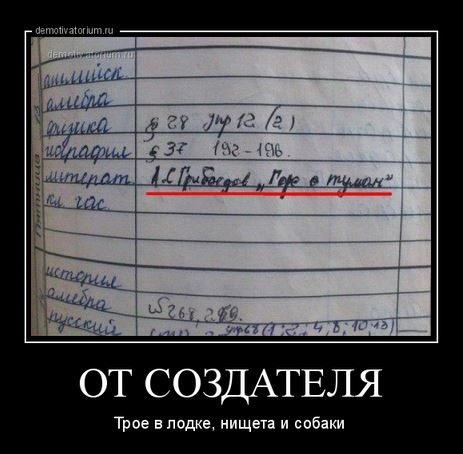 demotivatorium.ru
demotivatorium.ru
английск.
алгебра
физика § 28 упр 12 (2)
географи § 37 192-196.
литерат. А.С Грибоедов „Горе о туман"
кл час.
Пятница
история
алгебра № 268, 269.
русский стр упр68 (1; 2; 4, 8; 10, 13)
ОТ СОЗДАТЕЛЯ
Трое в лодке, нищета и собаки